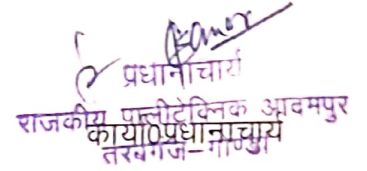 प्रधानाचार्य
राजकीय पालीटेक्निक आदमपुर
कार्या0प्रधानाचार्य
तरबगंज-गोण्डा